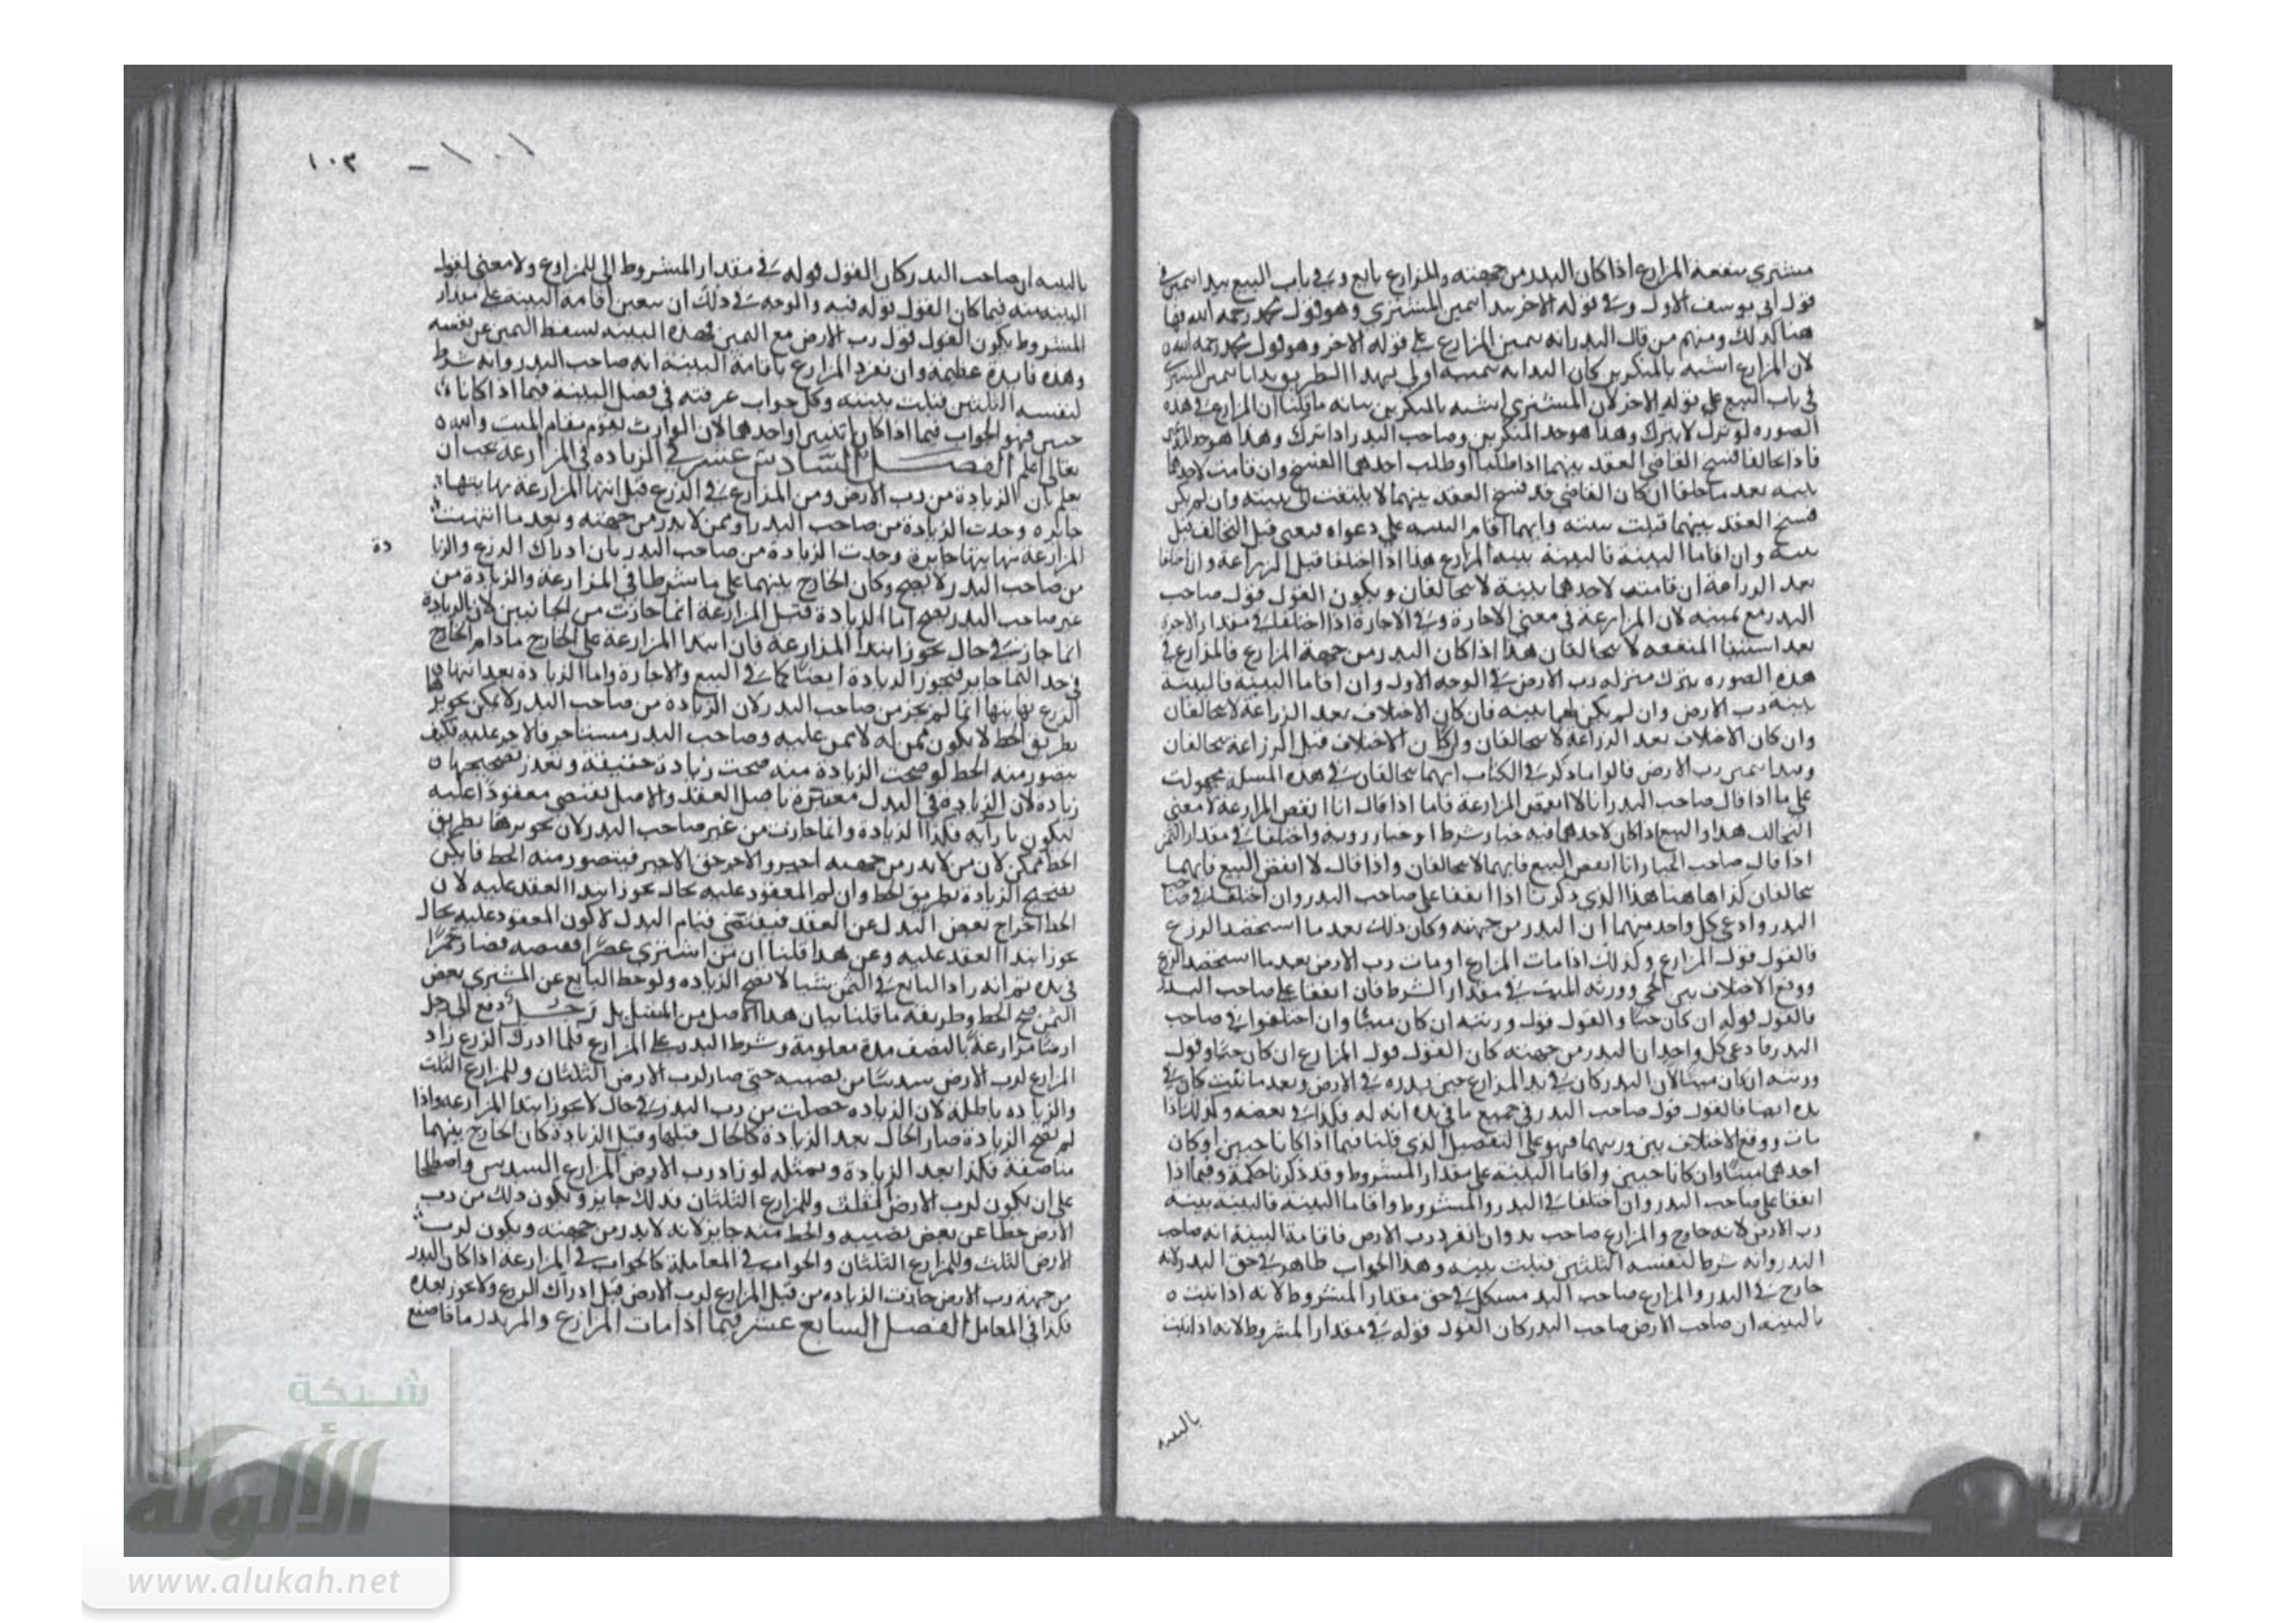 مشتري منفعة المزارع اذا كان البذر من جهته والمزارع بايع وفي باب البيع يبدا بيمين في
قول ابي يوسف الاول وفي قوله الاخر يبدا بيمين المشتري وهو قول محمد رحمه الله
هنا كذلك ومنهم من قال البداية بيمين المزارع على قوله الاخر وهو قول محمد رحمه الله
لان المزارع اشبه بالمنكرين كان البداية بيمينه اولى بهذا الطريق بدانا بيمين المشتري
في باب البيع على قوله الاخر لان المشتري اشبه بالمنكرين بيانه ما قلنا ان المزارع في هذه
الصورة لو ترك لا يترك وهذا هو حد المنكرين وصاحب البذر اذا ترك ترك وهذا هو حد
فاذا تحالفا فسخ القاضي العقد بينهما اذا طلبا او طلب احدهما الفسخ وان قامت لاحدهما
بينه بعد ما حلفا ان كان القاضي قد فسخ العقد بينهما لا يلتفت الى بينته وان لم يكن
فسخ العقد بينهما قبلت بينته وايهما اقام البينه على دعواه فيعني قبل التحالف قبل
بينته وان اقاما البينة فالبينة بينة المزارع هذا اذا اختلفا قبل الزراعة وان اختلفا
بعد الزراعة ان قامت لاحدهما بينة لا يتحالفان ويكون القول قول صاحب
البذر مع يمينه لان المزارعة في معنى الاجارة وفي الاجارة اذا اختلفا في مقدار الاجرة
بعد استيفا المنفعه لا يتحالفان هذا اذا كان البذر من جهة المزارع فالمزارع في
هذه الصوره ينزل منزلة رب الارض في الوجه الاول وان اقاما البينة فالبينة
بينة رب الارض وان لم يكن لهما بينه فان كان الاختلاف بعد الزراعة لا يتحالفان
وان كان الاختلاف بعد الزراعة لا يتحالفان وان كان الاختلاف قبل الزراعة يتحالفان
ويبدا بيمين رب الارض قالوا ما ذكر في الكتاب انهما يتحالفان في هذه المسلة محمولة
على ما اذا قال صاحب البذر انا لا انقض المزارعة فاما اذا قال انا انقض المزارعة لا معنى
التحالف هذا والبيع اذا كان لاحدهما فيه خيار شرط او خيار روية واختلفا في مقدار الثمن
اذا قال صاحب الخيار انا انقض البيع فانهما لا يتحالفان واذا قال لا انقض البيع فانهما
يتحالفان كذا ها هنا هذا الذي ذكرنا اذا اتفقا على صاحب البذر وان اختلفا في صاحب
البذر وادعى كل واحد منهما ان البذر من جهته وكان ذلك بعد ما استحصد الزرع
فالقول قول المزارع وكذلك اذا مات المزارع او مات رب الارض بعد ما استحصد الزرع
ووقع الاختلاف بين الحي وورثة الميت في مقدار الشرط فان اتفقا على صاحب البذر
فالقول قوله ان كان حيا والقول قول ورثته ان كان ميتا وان اختلفوا في صاحب
البذر فادعى كل واحد ان البذر من جهته كان القول قول المزارع ان كان حيا وقول
ورثته ان كان ميتا لان البذر كان في يد المزارع حين بذره في الارض وبعد ما نبت كان في
يده ايضا فالقول قول صاحب البذر في جميع ما في يده انه له فكذا في بعضه وكذلك اذا
مات ووقع الاختلاف بين ورثتهما فهو على التفصيل الذي قلنا فيما اذا كانا حيين او كان
احدهما ميتا وان كانا حيين واقاما البينة على مقدار المشروط وقد ذكرنا حكمه وفيما اذا
اتفقا على صاحب البذر وان اختلفا في البذر والمشروط واقاما البينة فالبينة بينة
رب الارض لانه خارج والمزارع صاحب يد وان انفرد رب الارض فاقامة البينة انه صاحب
البذر وانه شرط لنفسه الثلثين قبلت بينته وهذا الجواب ظاهر في حق البذر لانه
خارج في البذر والمزارع صاحب اليد مشكل في حق مقدار المشروط لانه اذا ثبت
بالبينه ان صاحب الارض صاحب البذر كان القول قوله في مقدار المشروط لانه اذا ثبت
بالبينه
١٠١ - ١٠٣
بالبينه ان صاحب البذر كان القول قوله في مقدار المشروط الى المزارع ولا معنى لقول
البينه منه فيما كان القول قوله فيه والوجه في ذلك ان تعين اقامة البينة على مقدار
المشروط يكون القول قول رب الارض مع اليمين فهذه البينه لسقط اليمين عن نفسه
وهذه فايدة عظيمة وان تفرد المزارع باقامة البينة انه صاحب البذر وانه شرط
لنفسه الثلثين قبلت بينته وكل جواب عرفته في فصل البينة فيما اذا كانا
حيين فهو الجواب فيما اذا كان ميتين او احدهما لان الوارث يقوم مقام الميت والله
تعالى اعلم الفصل السادس عشر في الزيادة في المزارعة يجب ان
يعلم بان الزيادة من رب الارض ومن المزارع في الزرع قبل انتها المزارعة نهايتها
جايزه وجدت الزيادة من صاحب البذر او ممن لا بذر من جهته وبعد ما انتهت
المزارعة نهايتها جايزة وجدت الزيادة من صاحب البذر بان ادراك الزرع والزيا
دة
من صاحب البذر لا يصح وكان الخارج بينهما على ما شرطا في المزارعة والزيادة من
غير صاحب البذر يصح اما الزيادة قبل المزارعة انما جازت من الجانبين لان الزيادة
انما جازت في حال يجوز ابتدا المزارعة فان ابتدا المزارعة على الخارج ما دام الخارج
في حد النما جايز فيجوز الزيادة ايضا كما في البيع والاجارة واما الزيادة بعد انتها
الزرع نهايتها انما لم يجز من صاحب البذر لان الزيادة من صاحب البذر لا يمكن تجويز
بطريق الحط لا يكون ممن له لا ممن عليه وصاحب البذر مستاجر فالاجر عليه فكيف
يتصور منه الحط لو صحت الزيادة منه صحت زيادة حقيقة وتعذر تصحيحها
زيادة لان الزيادة في البدل معتبرة باصل العقد والاصل يقتضي معقودا عليه
ليكون بازائه فكذا الزيادة وانما جازت من غير صاحب البذر لان تجويزها بطريق
الحط ممكن لان من لا بذر من جهته اجير والاجر حق الاجير فيتصور منه الحط فامكن
تصحيح الزيادة بطريق الحط وان لم المعقود عليه بحال يجوز ابتدا العقد عليه لان
الحط اخراج بعض البدل عن العقد فيقتضي قيام البدل لا كون المعقود عليه بحال
يجوز ابتدا العقد عليه وعن هذا قلنا ان من اشترى عصيرا فقبضه فصار خمرا
في يده ثم انه زاد البايع في الثمن شيئا لا يصح الزيادة ولو حط البايع عن المشتري بعض
الثمن صح الحط وطريقة ما قلنا بيان هذا الاصل من المسايل رجل دفع الى رجل
ارضا مزارعة بالنصف مدة معلومة وشرط البذر على المزارع فلما ادرك الزرع زاد
المزارع لرب الارض سدسا من نصيبه حتى صار لرب الارض الثلثان وللمزارع الثلث
والزيادة باطلة لان الزيادة حصلت من رب البذر في حال لا يجوز ابتدا المزارعة واذا
لم يصح الزيادة صار الحال بعد الزيادة كالحال قبلها وقبل الزيادة كان الخارج بينهما
مناصفة فكذا بعد الزيادة وبمثله لو زاد رب الارض المزارع السدس واصطلحا
على ان يكون لرب الارض الثلث وللمزارع الثلثان فذلك جايز ويكون ذلك من رب
الارض حطا عن بعض نصيبه والحط منه جايز لانه لا بذر من جهته ويكون لرب
الارض الثلث وللمزارع الثلثان والجواب في المعاملة كالجواب في المزارعة اذا كان البذر
من جهة رب الارض جازت الزيادة من قبل المزارع لرب الارض قبل ادراك الزرع ولا يجوز بعده
فكذا في المعامل الفصل السابع عشر فيما اذا مات المزارع
شبكة
الألوكة
www.alukah.net